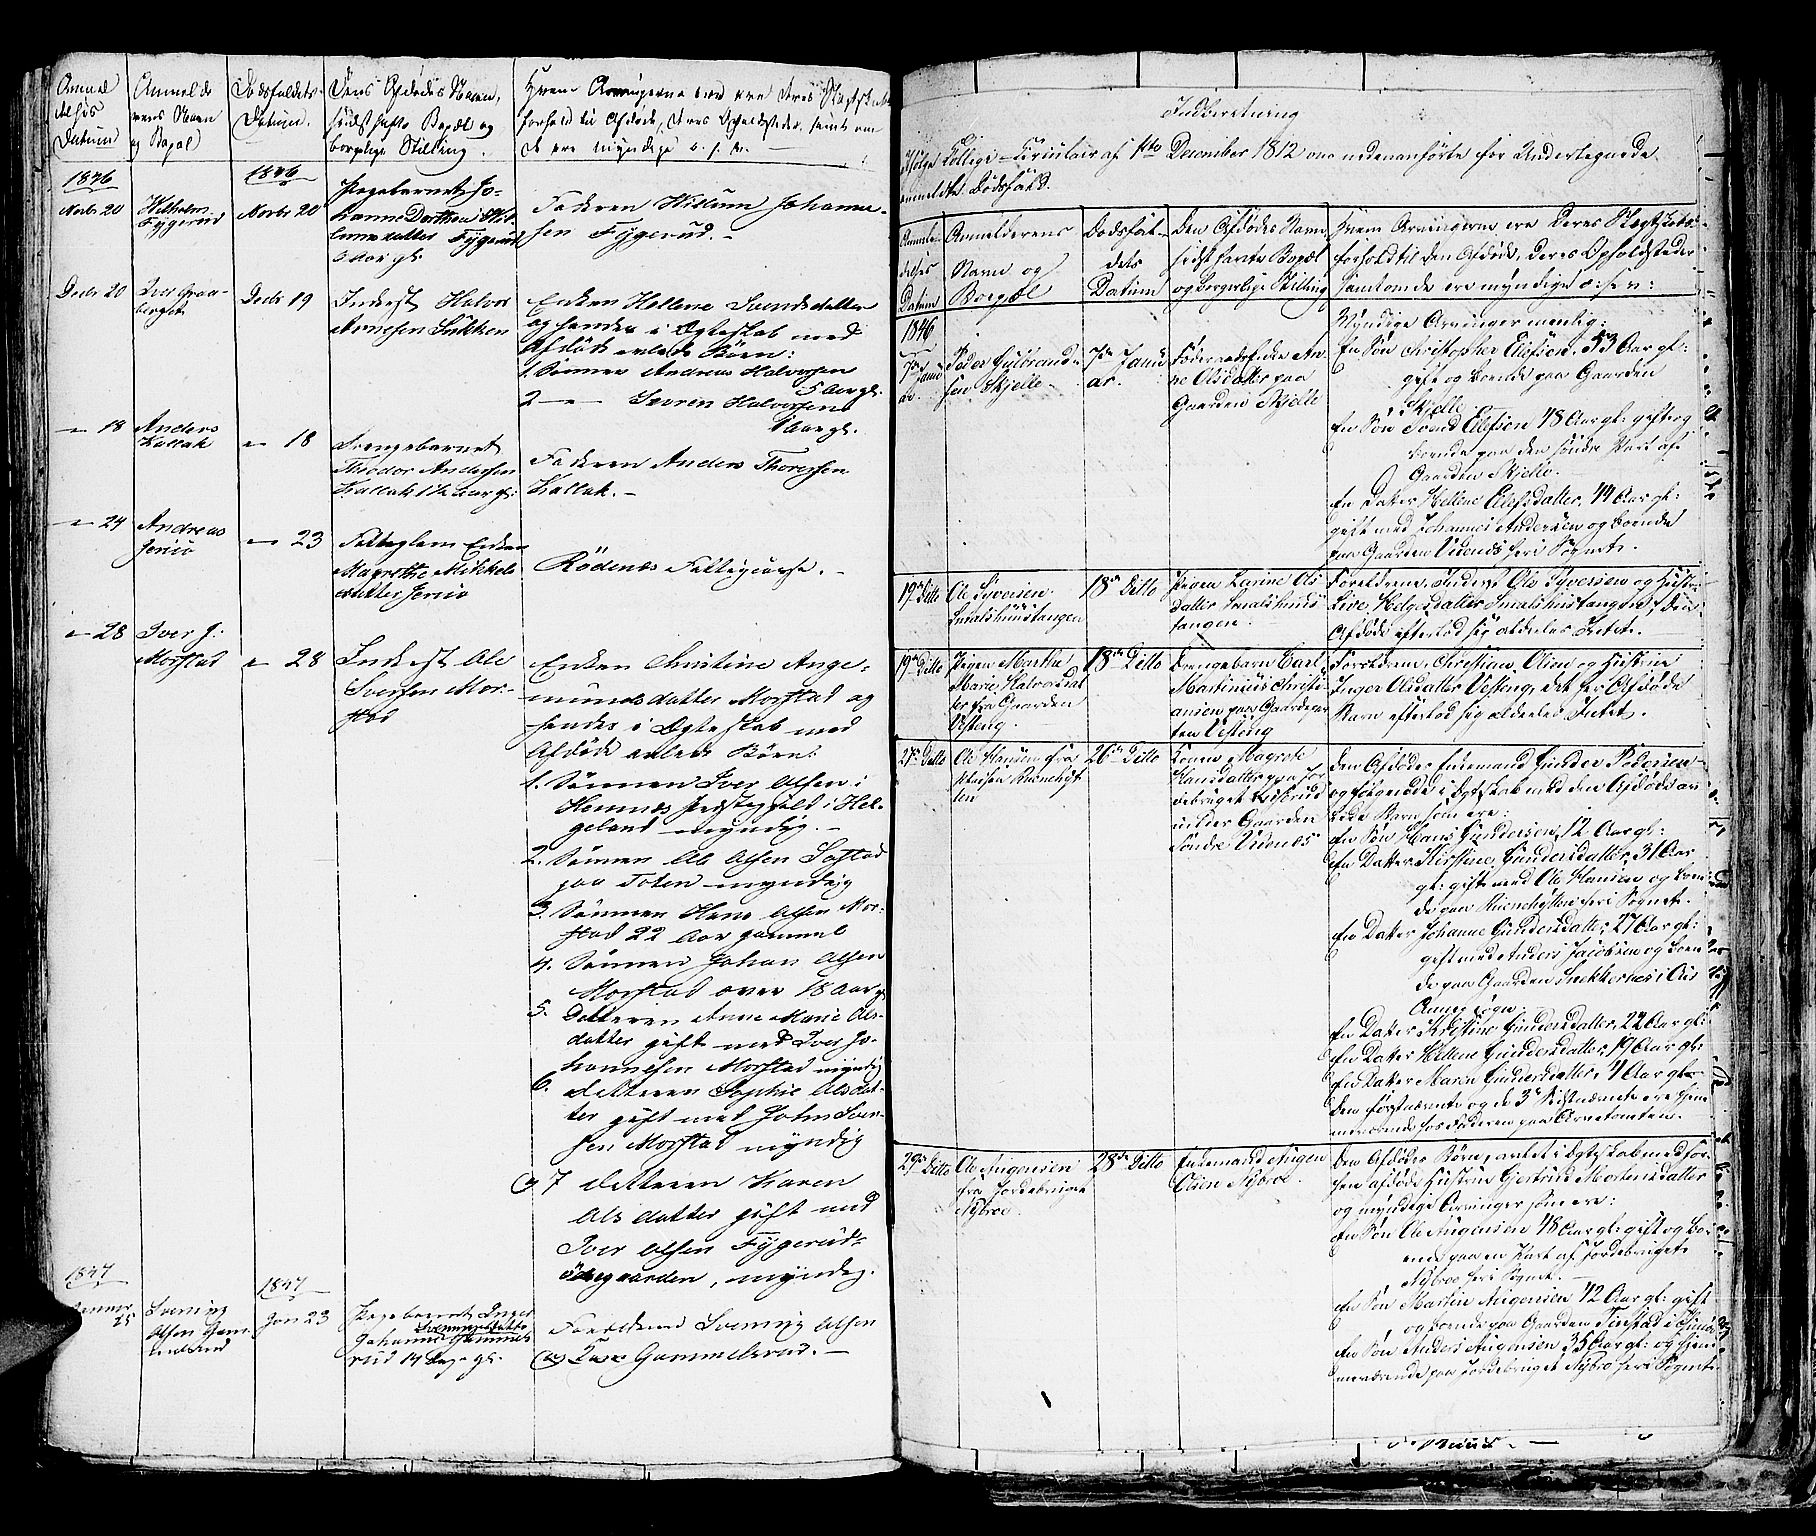 Anmel
delses
Datum
Anmelde
rens Navn
og Bopæl
Dødsfaldets
Datum.
Dens Afdødes Navn,
sidst hafte Bopæl og
borgelige Stilling.
Hvem Arvingerne ere deres Slægtskabs
forhold til Afdøde, deres Opholdsteder, samt om
de ere myndige o. s. v.
1846
Novbr 20
Wilhelm
Fygerud
1846
Novbr 20
Pigebarnet Jo-
hanne Dorthea Wil
lumsdatter Fygerud
Aar gl.
Faderen Willum Johanne-
sen Fygerud. -
Decbr 20
Decbr 19
Inderst Halvor
Arnesen
Enken Hellene Svendsdatter
og hendes i Ægteskab med
Afdøde avlede Børn:
1. Sønnen Andreas Halvorsen
5 Aar gl.
2 - - Severin Halvorsen
1 Aar gl.
- 18
Anders
Kallak
- 18
Drengebarnet
Theodor Andersen
Kallak 1½ aar gl:
Faderen Anders Thoresen
Kallak. -
- 24
Andreas
Jerico
- 23
Fattiglem Enken
Magrethe Mikkels
datter Jerico
Rødenæs Fattigcasse. -
- 28
Iver J:
Morstad
- 28
Inderst Ole
Iversen Mor-
stad
Enken Christine Ange-
mundsdatter Morstad og
hendes i Ægteskab med
Afdøde avlede Børn:
1. Sønnen Iver Olsen i
Hemnæs Præstegjæld i Hel-
geland myndig. -
2. Sønnen Ole Olsen Sogstad
paa Toten myndig
3. Sønnen Hans Olsen Mor-
stad 22 Aar gammel
4. Sønnen Johan Olsen
Morstad over 18 Aar gl
5. Datteren Anne Marie Ols-
datter gift med Iver Jo-
hannesen Morstad myndig
6. datteren Sophie Olsdat-
ter gift med John Iver-
sen Morstad myndig
og 7 datteren Karen
Olsdatter gift med
Iver Olsen Fygerud-
ødegaarden, myndig.
1847
Januar
25
Svening
Olsen Gam
melsrud
1847
Jan 23
Pigebarnet Inger
Sveningsdatter
Johanne Gammels
rud 14 Dage gl.
Forældrene Svening Olsen
Gammelsrud. -
Indberetning
Ifølge Collegi-Circulair af 1ste December 1812 om nedenanførte for Undertegnede
anmeldte Dødsfald.
Anmel-
delses
Datum
Anmelderens
Navn og
Boepæl
Dødsfal-
dets
Datum
Den Afdødes Navn
sidst havte Bopæl
og borgerlige Stilling
Hvem Arvingerne ere Deres Slægtskabs-
forhold til den Afdøde, deres Opholdsteder
samt om de ere myndige o: s: v:
1846
7de Janu
ar.
Peder Gulbrand-
sen Skjelle
7de Janu
ar.
Føderaadsenke An-
ne Olsdatter paa
Gaarden Skjelle
Myndige Arvinger nemlig:
En Søn Christopher Elefsen, 53 Aar gl:
gift og boende paa Gaarden
Skjelle
En Søn Svend Elefsen 48 Aar gl: gift og
boende paa den søndre Part af
Gaarden Skjelle.
En Datter Hellene Elefsdatter, 44 Aar gl:
gift med Johannes Andersen og boende
paa Gaarden Udenes her i Sognet.
19de Ditto
Ole Syversen
Smalshuustangen
18de Ditto
Pigen Karine Ols
datter Smalshuus
tangen.
Forældrene, Inderst Ole Syversen og Hustru
Live Helgesdatter Smalshustangen; Den
Afdøde efterlod sig aldeles Intet.
19de Ditto
Pigen Marthe
Marie Halvorsdat
ter fra Gaarden
Vesteng.
18de Ditto
Drengebarn Carl
Martinius Christi-
ansen paa Gaardepar
ten Vesteng
Forældrene, Christian Olsen og Hustrue
Inger Olsdatter Vesteng, det her Afdøde
Barn efterlod sig aldeles Intet.
27de Ditto
Ole Hansen fra
26de Ditto
Konen Magrete
Hansdatter paa Jor
debruget
under Gaarden
Søndre Udenes
Den Afdødes Enkemand Gunder Pedersen
og følgende i Ægteskab med den Afdøde av
lede Børn som ere:
En Søn Hans Gundersen, 12 Aar gl:
En Datter Kirstine Gundersdatter, 31 Aar
gl: gift med Ole Hansen og boen
de paa her i Sognet.
En Datter Johanne Gundersdatter, 27 Aar gl:
gift med Anders Jacobsen og boen
de paa Gaarden Snekkernes i Aas
Annexsogn.
En Datter Kristine Gundersdatter, 22 Aar gl:
En Datter Hellene Gundersdatter, 19 Aar gl:
En Datter Maren Gundersdatter, 4 Aar gl:
Den førstnævnte og de 3de sidstnævnte ere hjem
meværende hos Faderen paa Arnetomten.
29de Ditto
Ole Augensen
fra Jordebruget
Nybroe.
28de Ditto
Enkemand Augen
Olsen Nybroe.
Den Afdødes Børn, avlet i Ægteskab med for-
hen afdøde Hustrue Gjertrud Mortensdatter
og myndige Arvinger som ere:
En Søn Ole Augensen 48 Aar gl: gift og bo-
ende paa en Part af Jordebruget
Nybroe her i Sognet.
En Søn Martin Augensen 42 Aar gl: gift
og boende paa Gaarden
En Søn Anders Augensen 35 Aar gl: og hjem
meværende paa Jordebruget Nybro her i Sognet